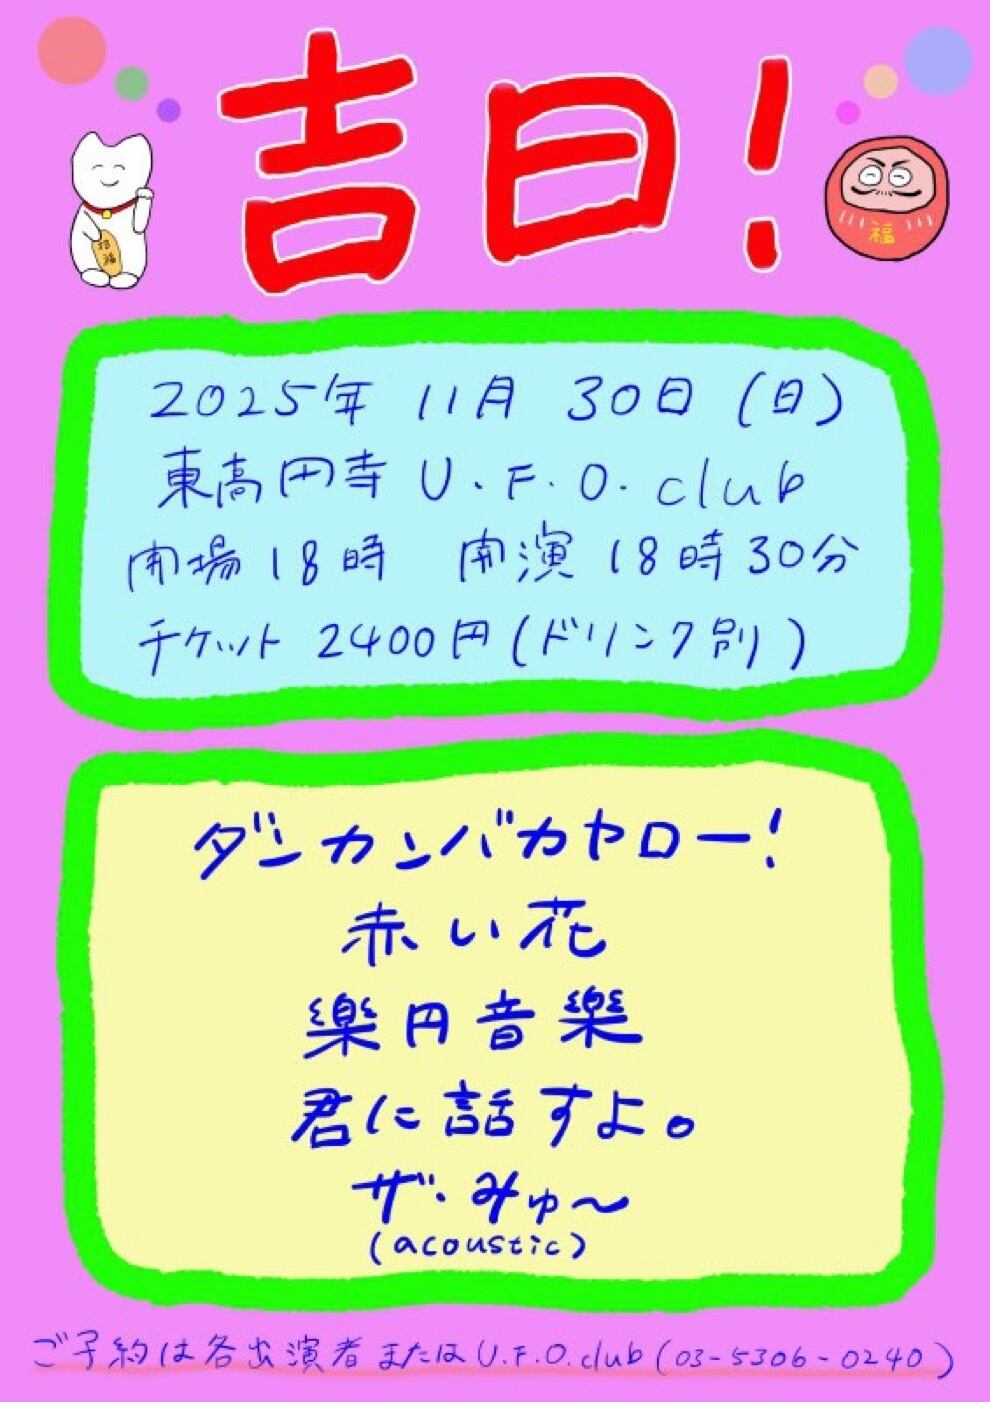 吉日!
招福
福
2025年 11月 30日 (日)
東高円寺 U.F.O. club
開場18時 開演18時30分
チケット 2400円(ドリンク別)
ダンカンバカヤロー!
赤い花
樂円音樂
君に話すよ。
ザ・みゅ〜
(acoustic)
ご予約は各出演者またはU.F.O.club(03-5306-0240)